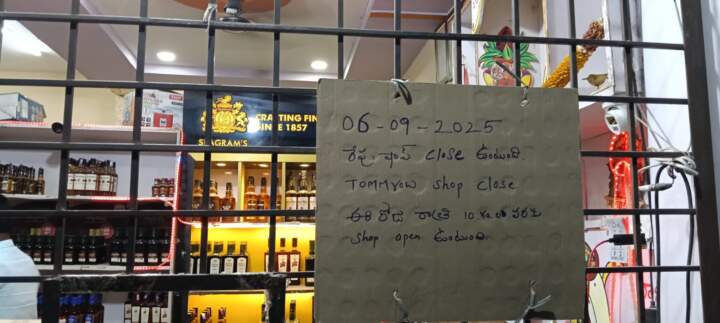 CRAFTING FIN
SINCE 1857
SEAGRAM'S
06-09-2025
రేపు షాప్ close ఉంటుంది
TOMMYOW shop close
ఈ రోజు రాత్రి 10.40 ల వరకు
shop open ఉంటుంది.